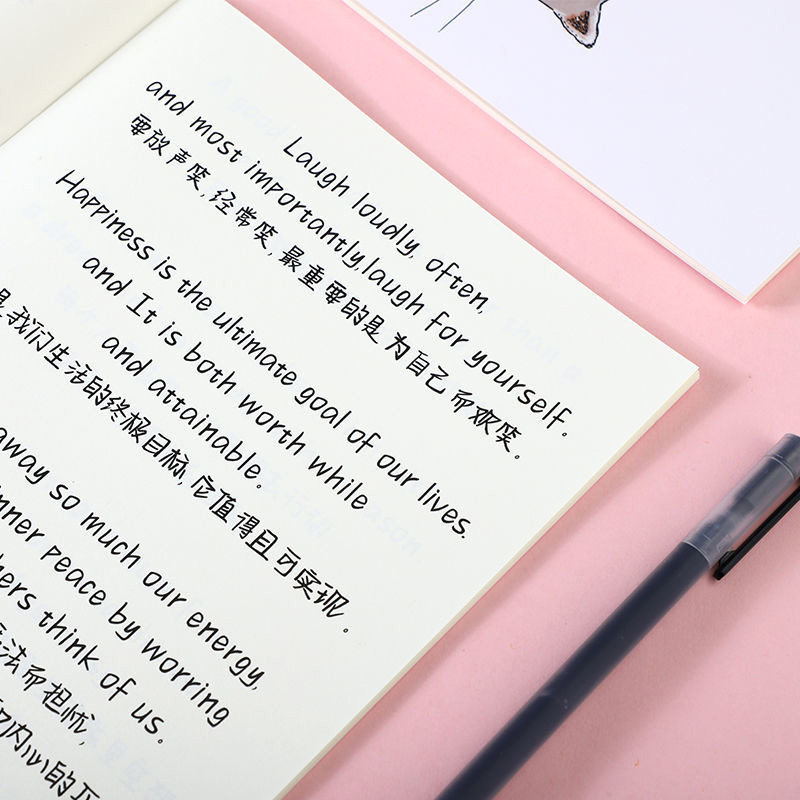 Laugh loudly, often,
and most importantly,laugh for yourself.
要放声笑,经常笑,最重要的是为自己而欢笑。
Happiness is the ultimate goal of our lives.
and It is both worth while
and attainable.
是我们生活的终极目标,它值得且可实现。
away so much our energy,
inner peace by worring
think of us.
法而担忧,
内心的